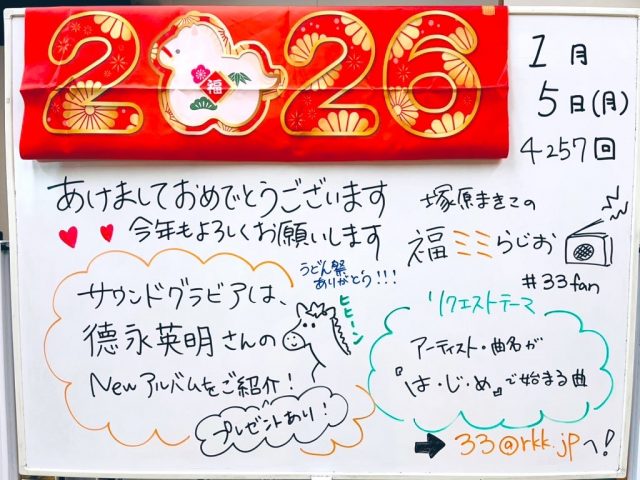 2026
福
1月
5日(月)
4257回
あけましておめでとうございます
今年もよろしくお願いします
塚原まきこの
福ミミらじお
#33fan
うどん祭
ありがとう!!!
ヒヒーン
サウンドグラビアは、
德永英明さんの
Newアルバムをご紹介!
プレゼントあり!
リクエストテーマ
アーティスト・曲名が
『は・じ・め』で始まる曲
➡ 33@rkk.jpへ!